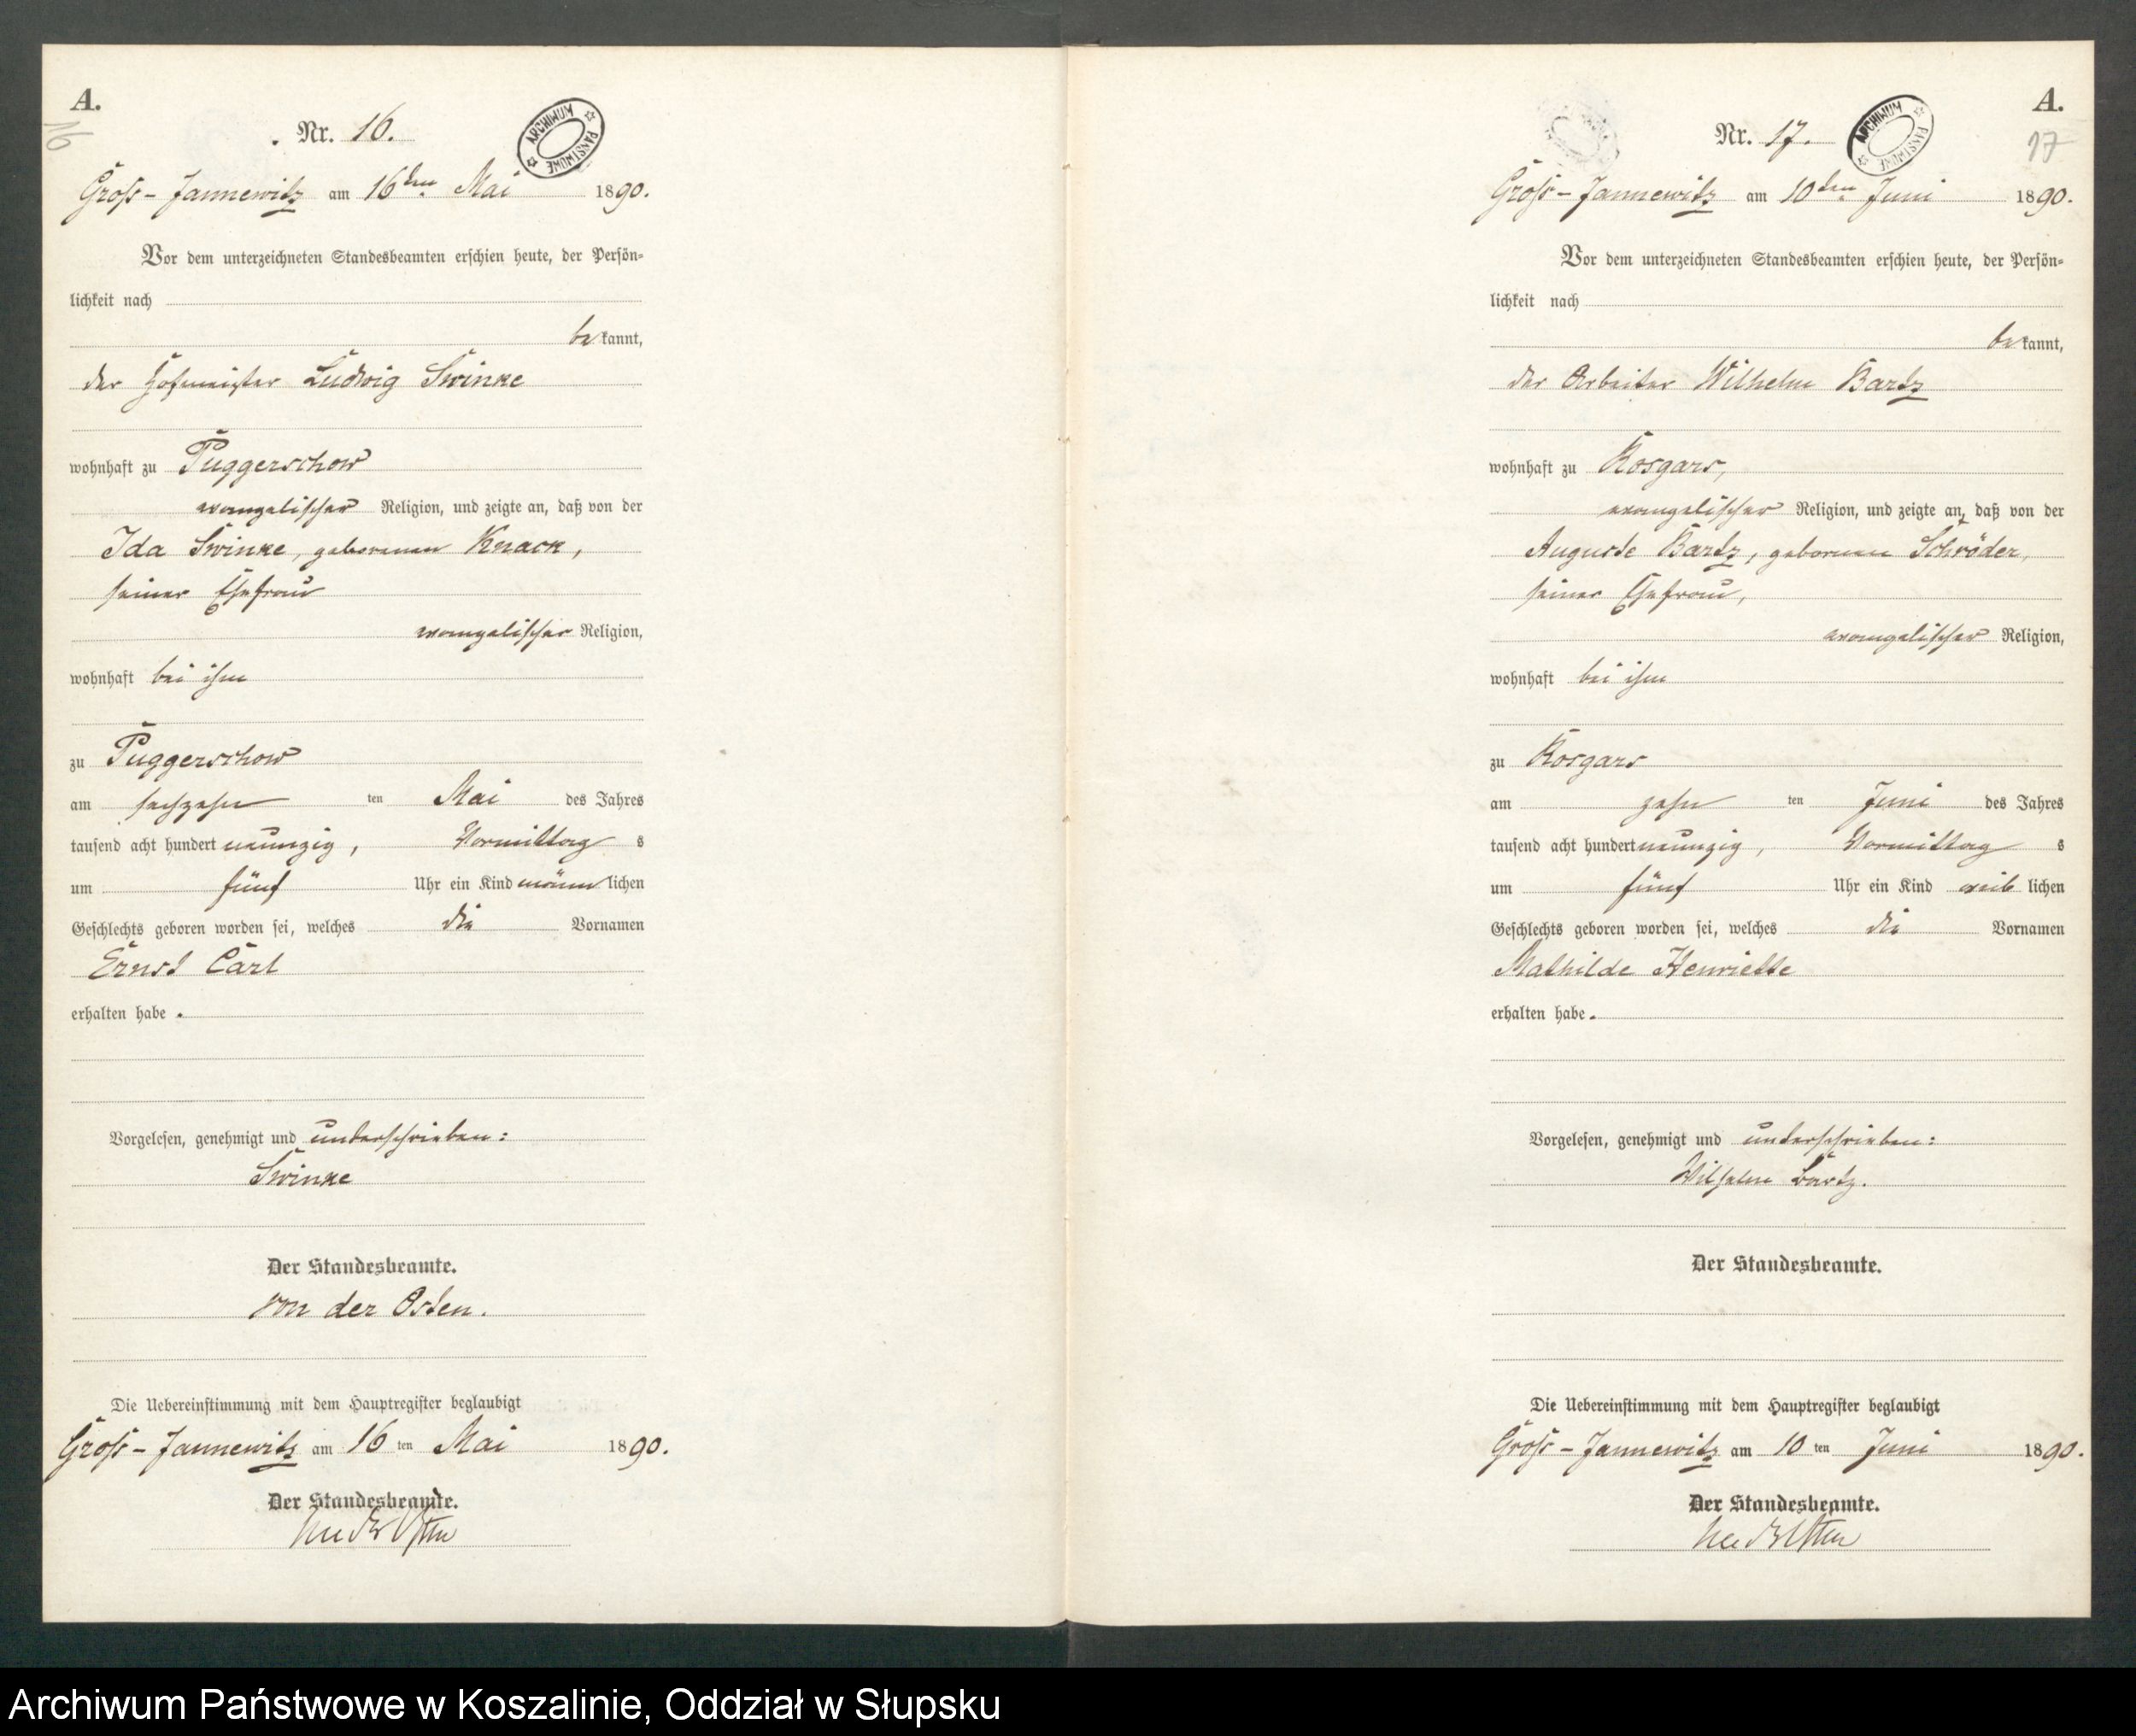 A.
16
Nr. 16.
ARCHIWUM PAŃSTWOWE
Gross-Jannewitz am 16ten Mai 1890.
Vor dem unterzeichneten Standesbeamten erschien heute, der Persön-
lichkeit nach
bekannt,
der Hofmeister Ludwig Swinke
wohnhaft zu Puggerschow
evangelischer Religion, und zeigte an, daß von der
Ida Swinke, geborenen Knack,
seiner Ehefrau
evangelischer Religion,
wohnhaft bei ihm
zu Puggerschow
am sechzehn ten Mai des Jahres
tausend acht hundert neunzig, Vormittag s
um fünf Uhr ein Kind männlichen
Geschlechts geboren worden sei, welches die Vornamen
Ernst Carl
erhalten habe.
Vorgelesen, genehmigt und unterschrieben:
Swinke
Der Standesbeamte.
von der Osten.
Die Uebereinstimmung mit dem Hauptregister beglaubigt
Gross-Jannewitz am 16 ten Mai 1890.
Der Standesbeamte.
von der Osten
A.
17
Nr. 17.
ARCHIWUM PAŃSTWOWE
Gross-Jannewitz am 10ten Juni 1890.
Vor dem unterzeichneten Standesbeamten erschien heute, der Persön-
lichkeit nach
bekannt,
der Arbeiter Wilhelm Bartz
wohnhaft zu Rosgars,
evangelischer Religion, und zeigte an, daß von der
Auguste Bartz, geborenen Schröder,
seiner Ehefrau,
evangelischer Religion,
wohnhaft bei ihm
zu Rosgars
am zehn ten Juni des Jahres
tausend acht hundert neunzig, Vormittag s
um fünf Uhr ein Kind weiblichen
Geschlechts geboren worden sei, welches die Vornamen
Mathilde Henriette
erhalten habe.
Vorgelesen, genehmigt und unterschrieben:
Wilhelm Bartz.
Der Standesbeamte.
Die Uebereinstimmung mit dem Hauptregister beglaubigt
Gross-Jannewitz am 10 ten Juni 1890.
Der Standesbeamte.
von der Osten
Archiwum Państwowe w Koszalinie, Oddział w Słupsku